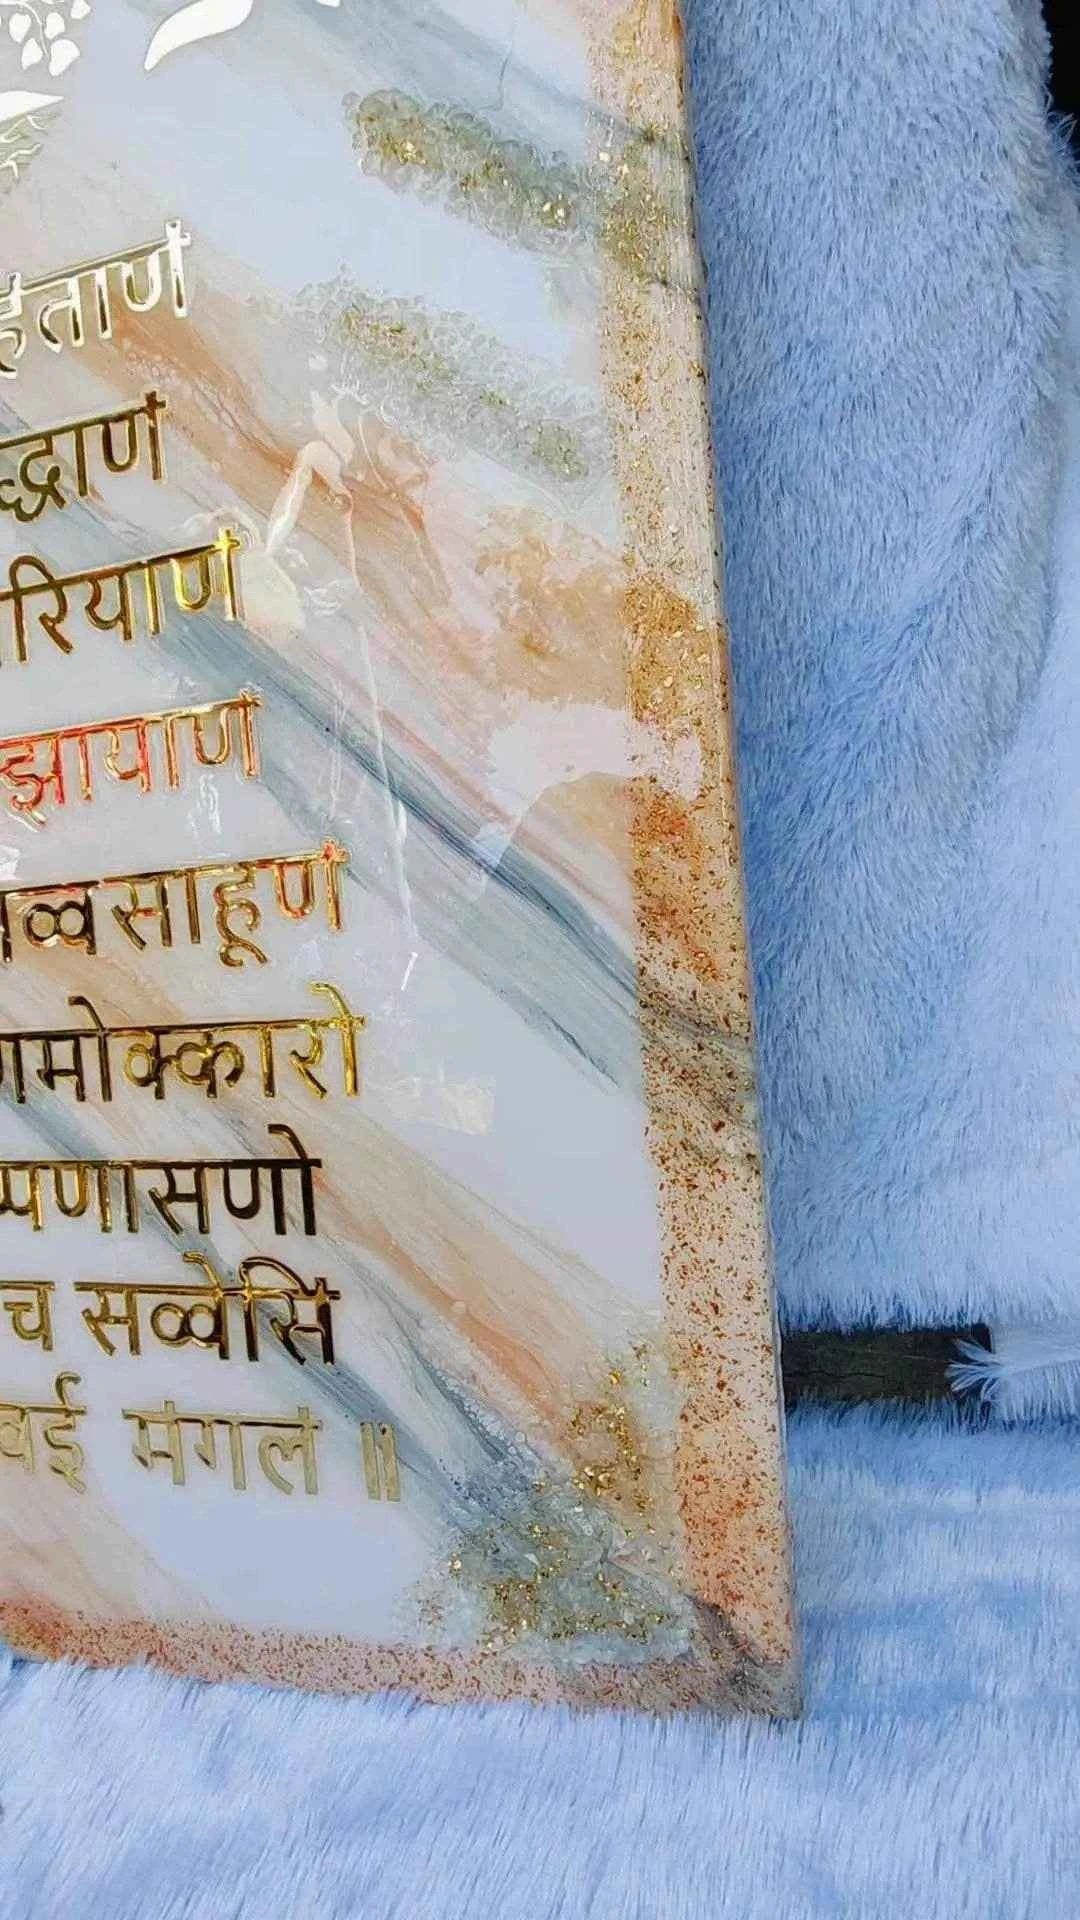 हंताणं
द्धाणं
रियाणं
ज्झायाणं
सव्वसाहूणं
णमोक्कारो
प्पणासणो
च सव्वेसिं
वई मंगलं ॥